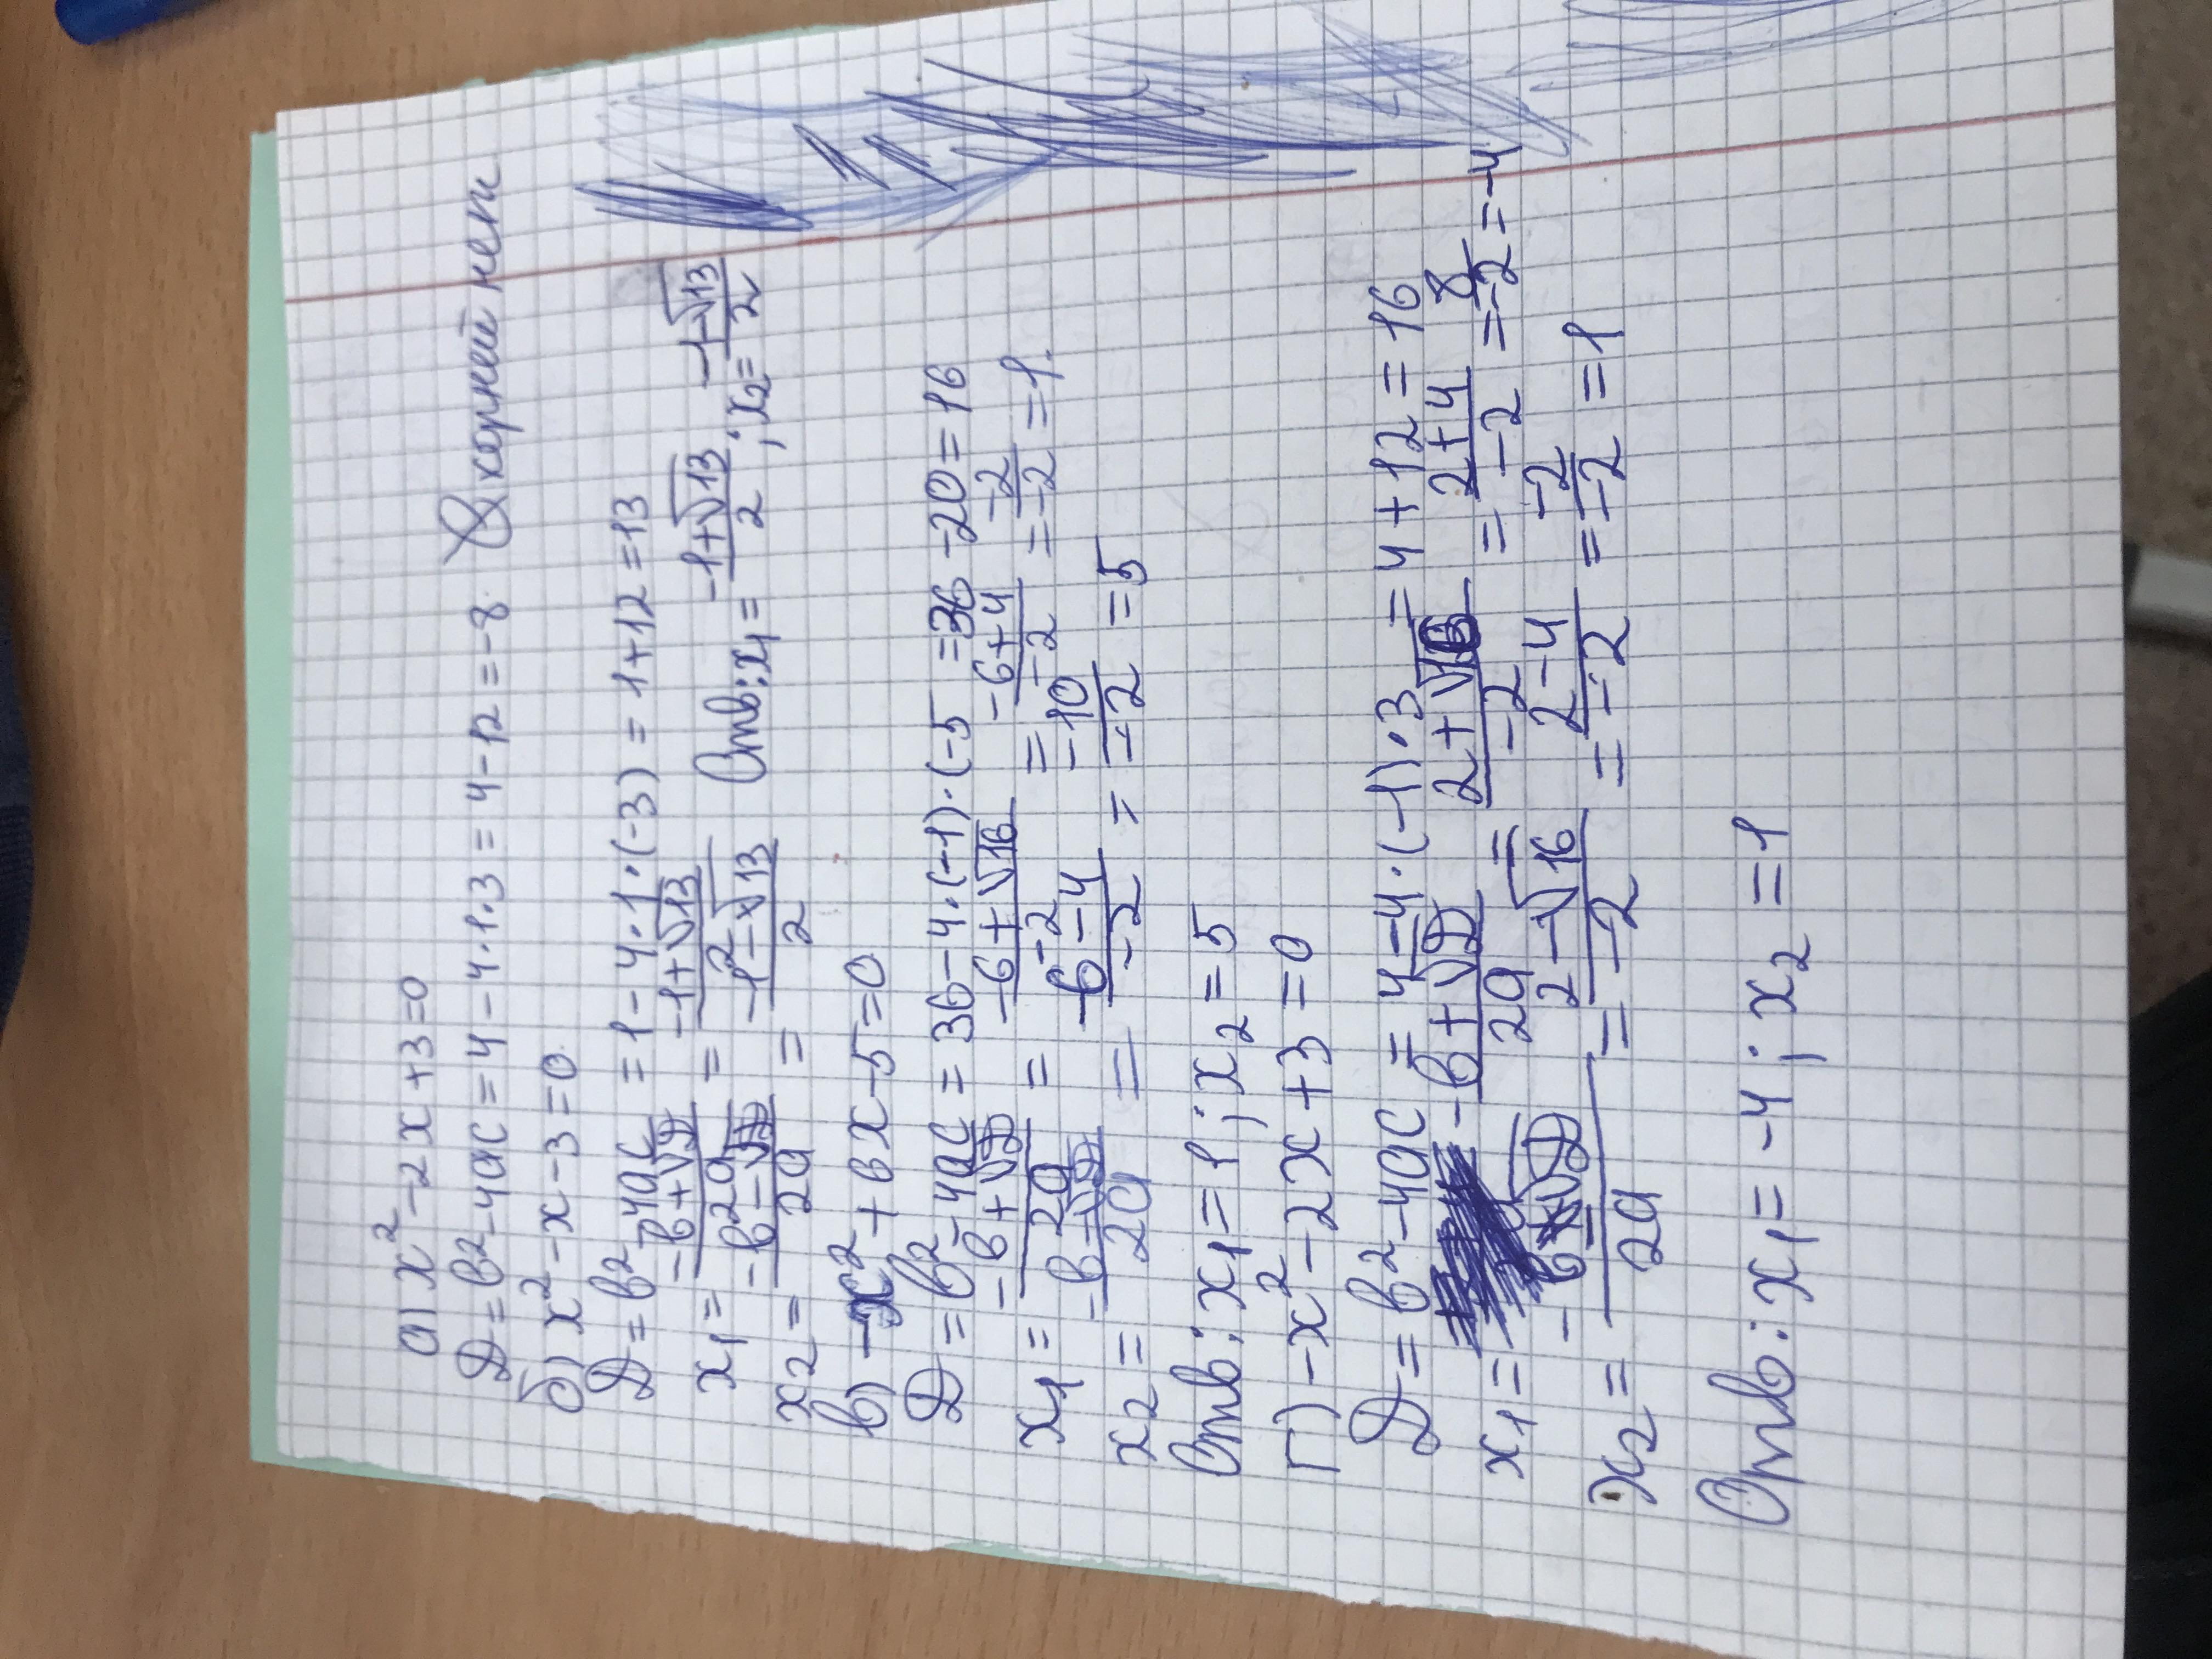 а) x²-2x+3=0
D=b²-4ac=4-4·1·3=4-12=-8 корней нет
б) x²-x-3=0
D=b²-4ac=1-4·1·(-3)=1+12=13
x₁=(-b+√D)/2a=(-1+√13)/2 Отв: x₁=(-1+√13)/2; x₂=(-1-√13)/2
x₂=(-b-√D)/2a=(-1-√13)/2
в) -x²+6x-5=0
D=b²-4ac=36-4·(-1)·(-5=36-20=16
x₁=(-b+√D)/2a=(-6+√16)/-2=(-6+4)/-2=-2/-2=1.
x₂=(-b-√D)/2a=(-6-4)/-2=-10/-2=5
Отв: x₁=1; x₂=5
Г) -x²-2x+3=0
D=b²-4ac=4-4·(-1)·3=4+12=16
x₁=(-b+√D)/2a=(2+√16)/-2=(2+4)/-2=8/-2=-4
x₂=(-b-√D)/2a=(2-√16)/-2=(2-4)/-2=-2/-2=1
Отв: x₁=-4; x₂=1